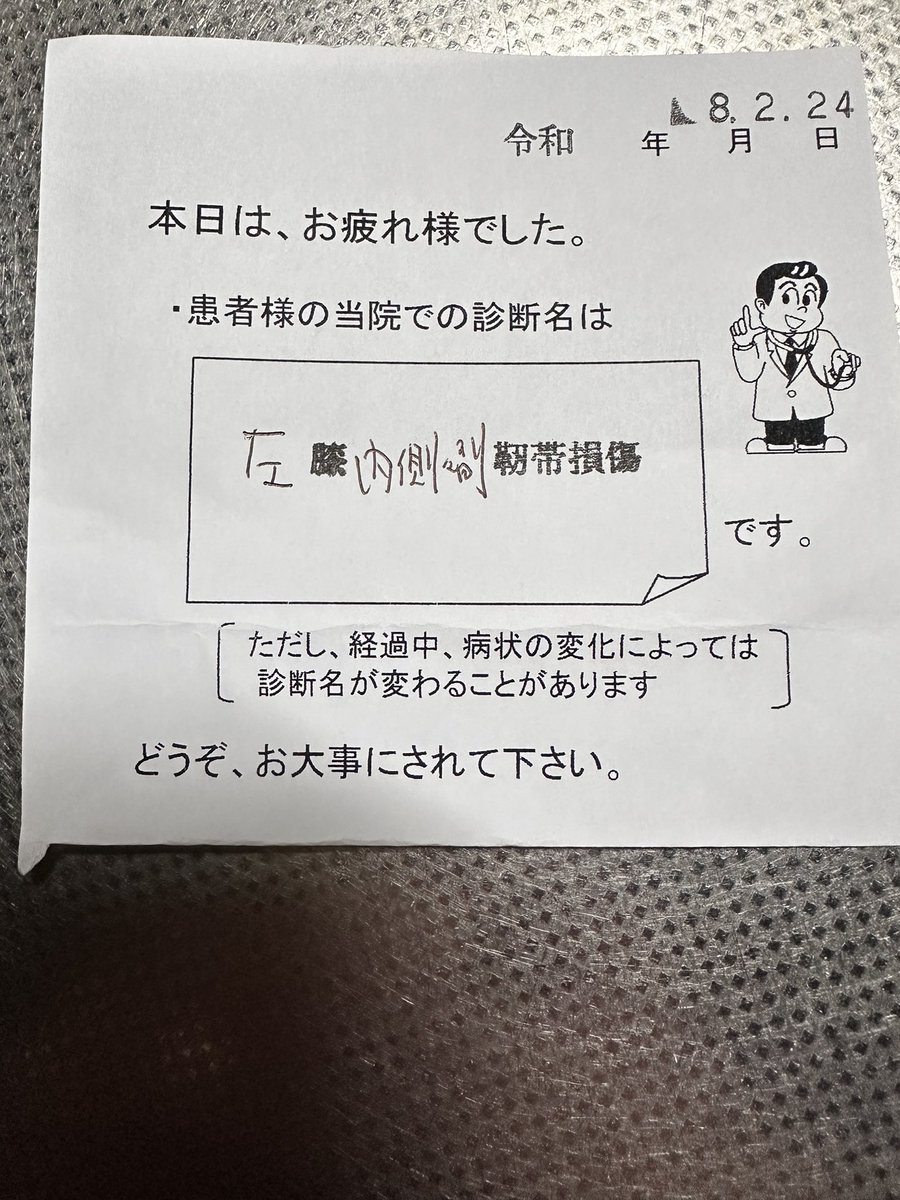 8.2.24
令和 年 月 日
本日は、お疲れ様でした。
・患者様の当院での診断名は
左膝内側副靭帯損傷
です。
ただし、経過中、病状の変化によっては
診断名が変わることがあります
どうぞ、お大事にされて下さい。